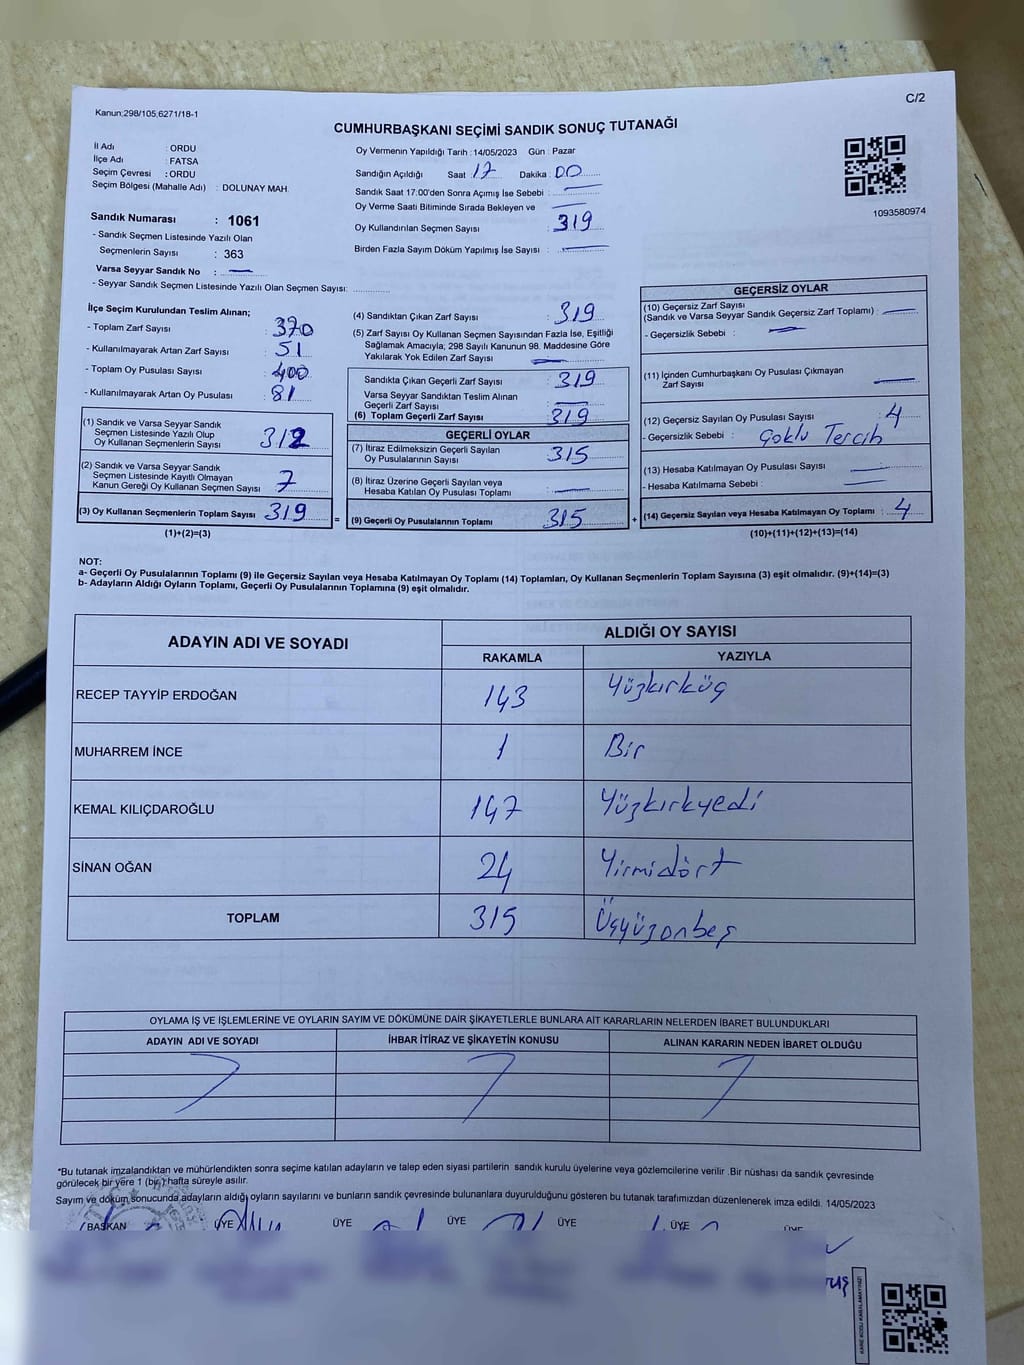 C/2
Kanun;298/105;6271/18-1
CUMHURBAŞKANI SEÇİMİ SANDIK SONUÇ TUTANAĞI
İl Adı : ORDU
İlçe Adı : FATSA
Seçim Çevresi : ORDU
Seçim Bölgesi (Mahalle Adı) : DOLUNAY MAH.
Sandık Numarası : 1061
- Sandık Seçmen Listesinde Yazılı Olan
Seçmenlerin Sayısı : 363
Varsa Seyyar Sandık No : —
- Seyyar Sandık Seçmen Listesinde Yazılı Olan Seçmen Sayısı:
Oy Vermenin Yapıldığı Tarih : 14/05/2023 Gün : Pazar
Sandığın Açıldığı Saat : 17 Dakika : 00
Sandık Saat 17:00'den Sonra Açımış İse Sebebi : —
Oy Verme Saati Bitiminde Sırada Bekleyen ve —
Oy Kullandırılan Seçmen Sayısı : 319
Birden Fazla Sayım Döküm Yapılmış İse Sayısı : —
1093580974
İlçe Seçim Kurulundan Teslim Alınan;
- Toplam Zarf Sayısı : 370
- Kullanılmayarak Artan Zarf Sayısı : 51
- Toplam Oy Pusulası Sayısı : 400
- Kullanılmayarak Artan Oy Pusulası : 81
(1) Sandık ve Varsa Seyyar Sandık
Seçmen Listesinde Yazılı Olup
Oy Kullanan Seçmenlerin Sayısı 312
(2) Sandık ve Varsa Seyyar Sandık
Seçmen Listesinde Kayıtlı Olmayan
Kanun Gereği Oy Kullanan Seçmen Sayısı 7
(3) Oy Kullanan Seçmenlerin Toplam Sayısı 319
(1)+(2)=(3)
=
(4) Sandıktan Çıkan Zarf Sayısı : 319
(5) Zarf Sayısı Oy Kullanan Seçmen Sayısından Fazla İse, Eşitliği
Sağlamak Amacıyla; 298 Sayılı Kanunun 98. Maddesine Göre
Yakılarak Yok Edilen Zarf Sayısı —
Sandıkta Çıkan Geçerli Zarf Sayısı : 319
Varsa Seyyar Sandıktan Teslim Alınan
Geçerli Zarf Sayısı : —
(6) Toplam Geçerli Zarf Sayısı : 319
GEÇERLİ OYLAR
(7) İtiraz Edilmeksizin Geçerli Sayılan
Oy Pusulalarının Sayısı : 315
(8) İtiraz Üzerine Geçerli Sayılan veya
Hesaba Katılan Oy Pusulası Toplamı : —
(9) Geçerli Oy Pusulalarının Toplamı 315
+
GEÇERSİZ OYLAR
(10) Geçersiz Zarf Sayısı
(Sandık ve Varsa Seyyar Sandık Geçersiz Zarf Toplamı) : —
- Geçersizlik Sebebi : —
(11) İçinden Cumhurbaşkanı Oy Pusulası Çıkmayan
Zarf Sayısı —
(12) Geçersiz Sayılan Oy Pusulası Sayısı : 4
- Geçersizlik Sebebi : Çoklu Tercih
(13) Hesaba Katılmayan Oy Pusulası Sayısı : —
- Hesaba Katılmama Sebebi : —
(14) Geçersiz Sayılan veya Hesaba Katılmayan Oy Toplamı : 4
(10)+(11)+(12)+(13)=(14)
NOT:
a- Geçerli Oy Pusulalarının Toplamı (9) ile Geçersiz Sayılan veya Hesaba Katılmayan Oy Toplamı (14) Toplamları, Oy Kullanan Seçmenlerin Toplam Sayısına (3) eşit olmalıdır. (9)+(14)=(3)
b- Adayların Aldığı Oyların Toplamı, Geçerli Oy Pusulalarının Toplamına (9) eşit olmalıdır.
ADAYIN ADI VE SOYADI ALDIĞI OY SAYISI
RAKAMLA YAZIYLA
RECEP TAYYİP ERDOĞAN 143 Yüzkırküç
MUHARREM İNCE 1 Bir
KEMAL KILIÇDAROĞLU 147 Yüzkırkyedi
SİNAN OĞAN 24 Yirmidört
TOPLAM 315 Üçyüzonbeş
OYLAMA İŞ VE İŞLEMLERİNE VE OYLARIN SAYIM VE DÖKÜMÜNE DAİR ŞİKAYETLERLE BUNLARA AİT KARARLARIN NELERDEN İBARET BULUNDUKLARI
ADAYIN ADI VE SOYADI İHBAR İTİRAZ VE ŞİKAYETİN KONUSU ALINAN KARARIN NEDEN İBARET OLDUĞU
*Bu tutanak imzalandıktan ve mühürlendikten sonra seçime katılan adayların ve talep eden siyasi partilerin sandık kurulu üyelerine veya gözlemcilerine verilir .Bir nüshası da sandık çevresinde
görülecek bir yere 1 (bir ) hafta süreyle asılır.
Sayım ve döküm sonucunda adayların aldığı oyların sayılarını ve bunların sandık çevresinde bulunanlara duyurulduğunu gösteren bu tutanak tarafımızdan düzenlenerek imza edildi. 14/05/2023
BAŞKAN ÜYE ÜYE ÜYE ÜYE ÜYE ÜYE